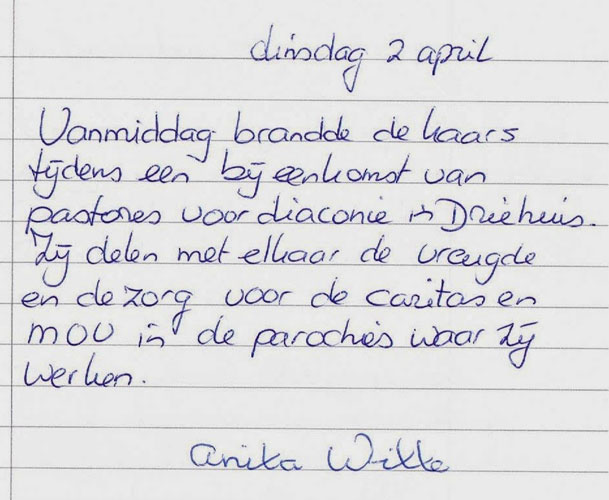 dinsdag 2 april
Vanmiddag brandde de kaars
tijdens een bijeenkomst van
pastores voor diaconie in Driehuis.
Zij delen met elkaar de vreugde
en de zorg voor de caritas en
MOV in de parochies waar zij
werken.
Anika Witte